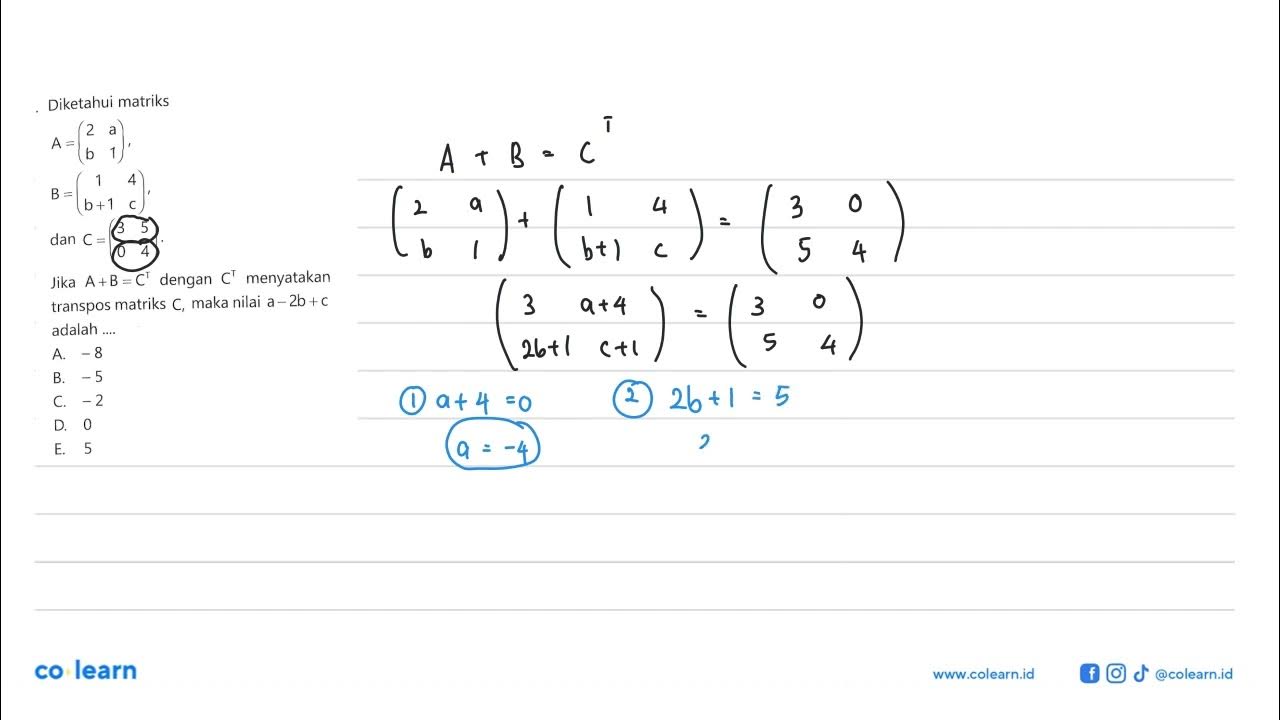 . Diketahui matriks
A = (2 a
b 1),
B = (1 4
b+1 c),
dan C = (3 5
0 4).
Jika A+B=Cᵀ dengan Cᵀ menyatakan
transpos matriks C, maka nilai a−2b+c
adalah ....
A. −8
B. −5
C. −2
D. 0
E. 5
A + B = Cᵀ
(2 a) + (1 4) = (3 0)
(b 1) (b+1 c) (5 4)
(3 a+4) = (3 0)
(2b+1 c+1) (5 4)
① a+4 =0 ② 2b+1 = 5
a = -4 2
co learn
www.colearn.id @colearn.id